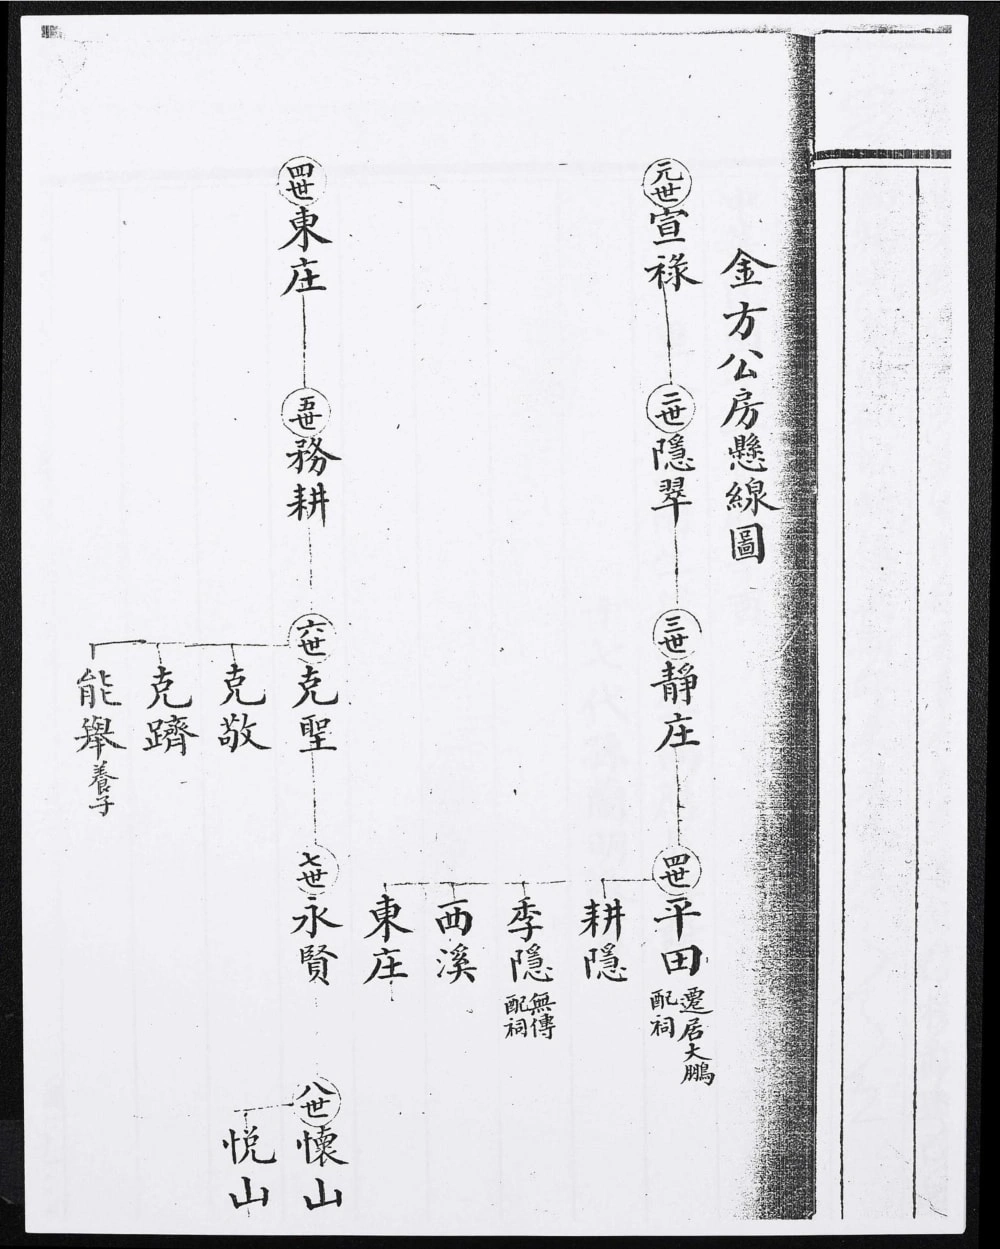 金方公房懸線圖
元世
宣祿
二世
隱翠
三世
靜庄
四世
平田 遷居大鵬 配祠
耕隱
季隱 無傳 配祠
西溪
東庄
四世
東庄
五世
務耕
六世
克聖
克敬
克躋
能舉 養子
七世
永賢
八世
懷山
悅山